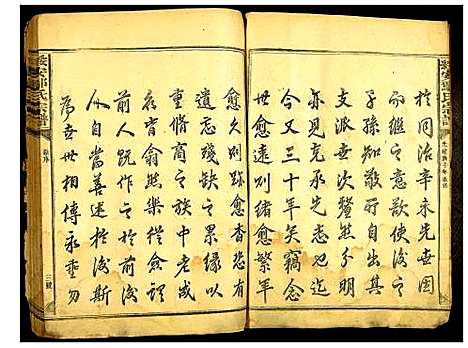 於同治辛未先世因
而繼之意欲使後之
子孫知所自出與其
支派之次釐然分明
亦見克承先志迄
今又三十年矣竊念
世愈遠則緒愈繁年
愈久則跡愈杳恐有
遺忘殘缺之累緣以
重修商之族中老成
者皆翕然樂從僉謂
前人既作於前後
人自當善述於後斯
為世世相傳永垂勿
卷序